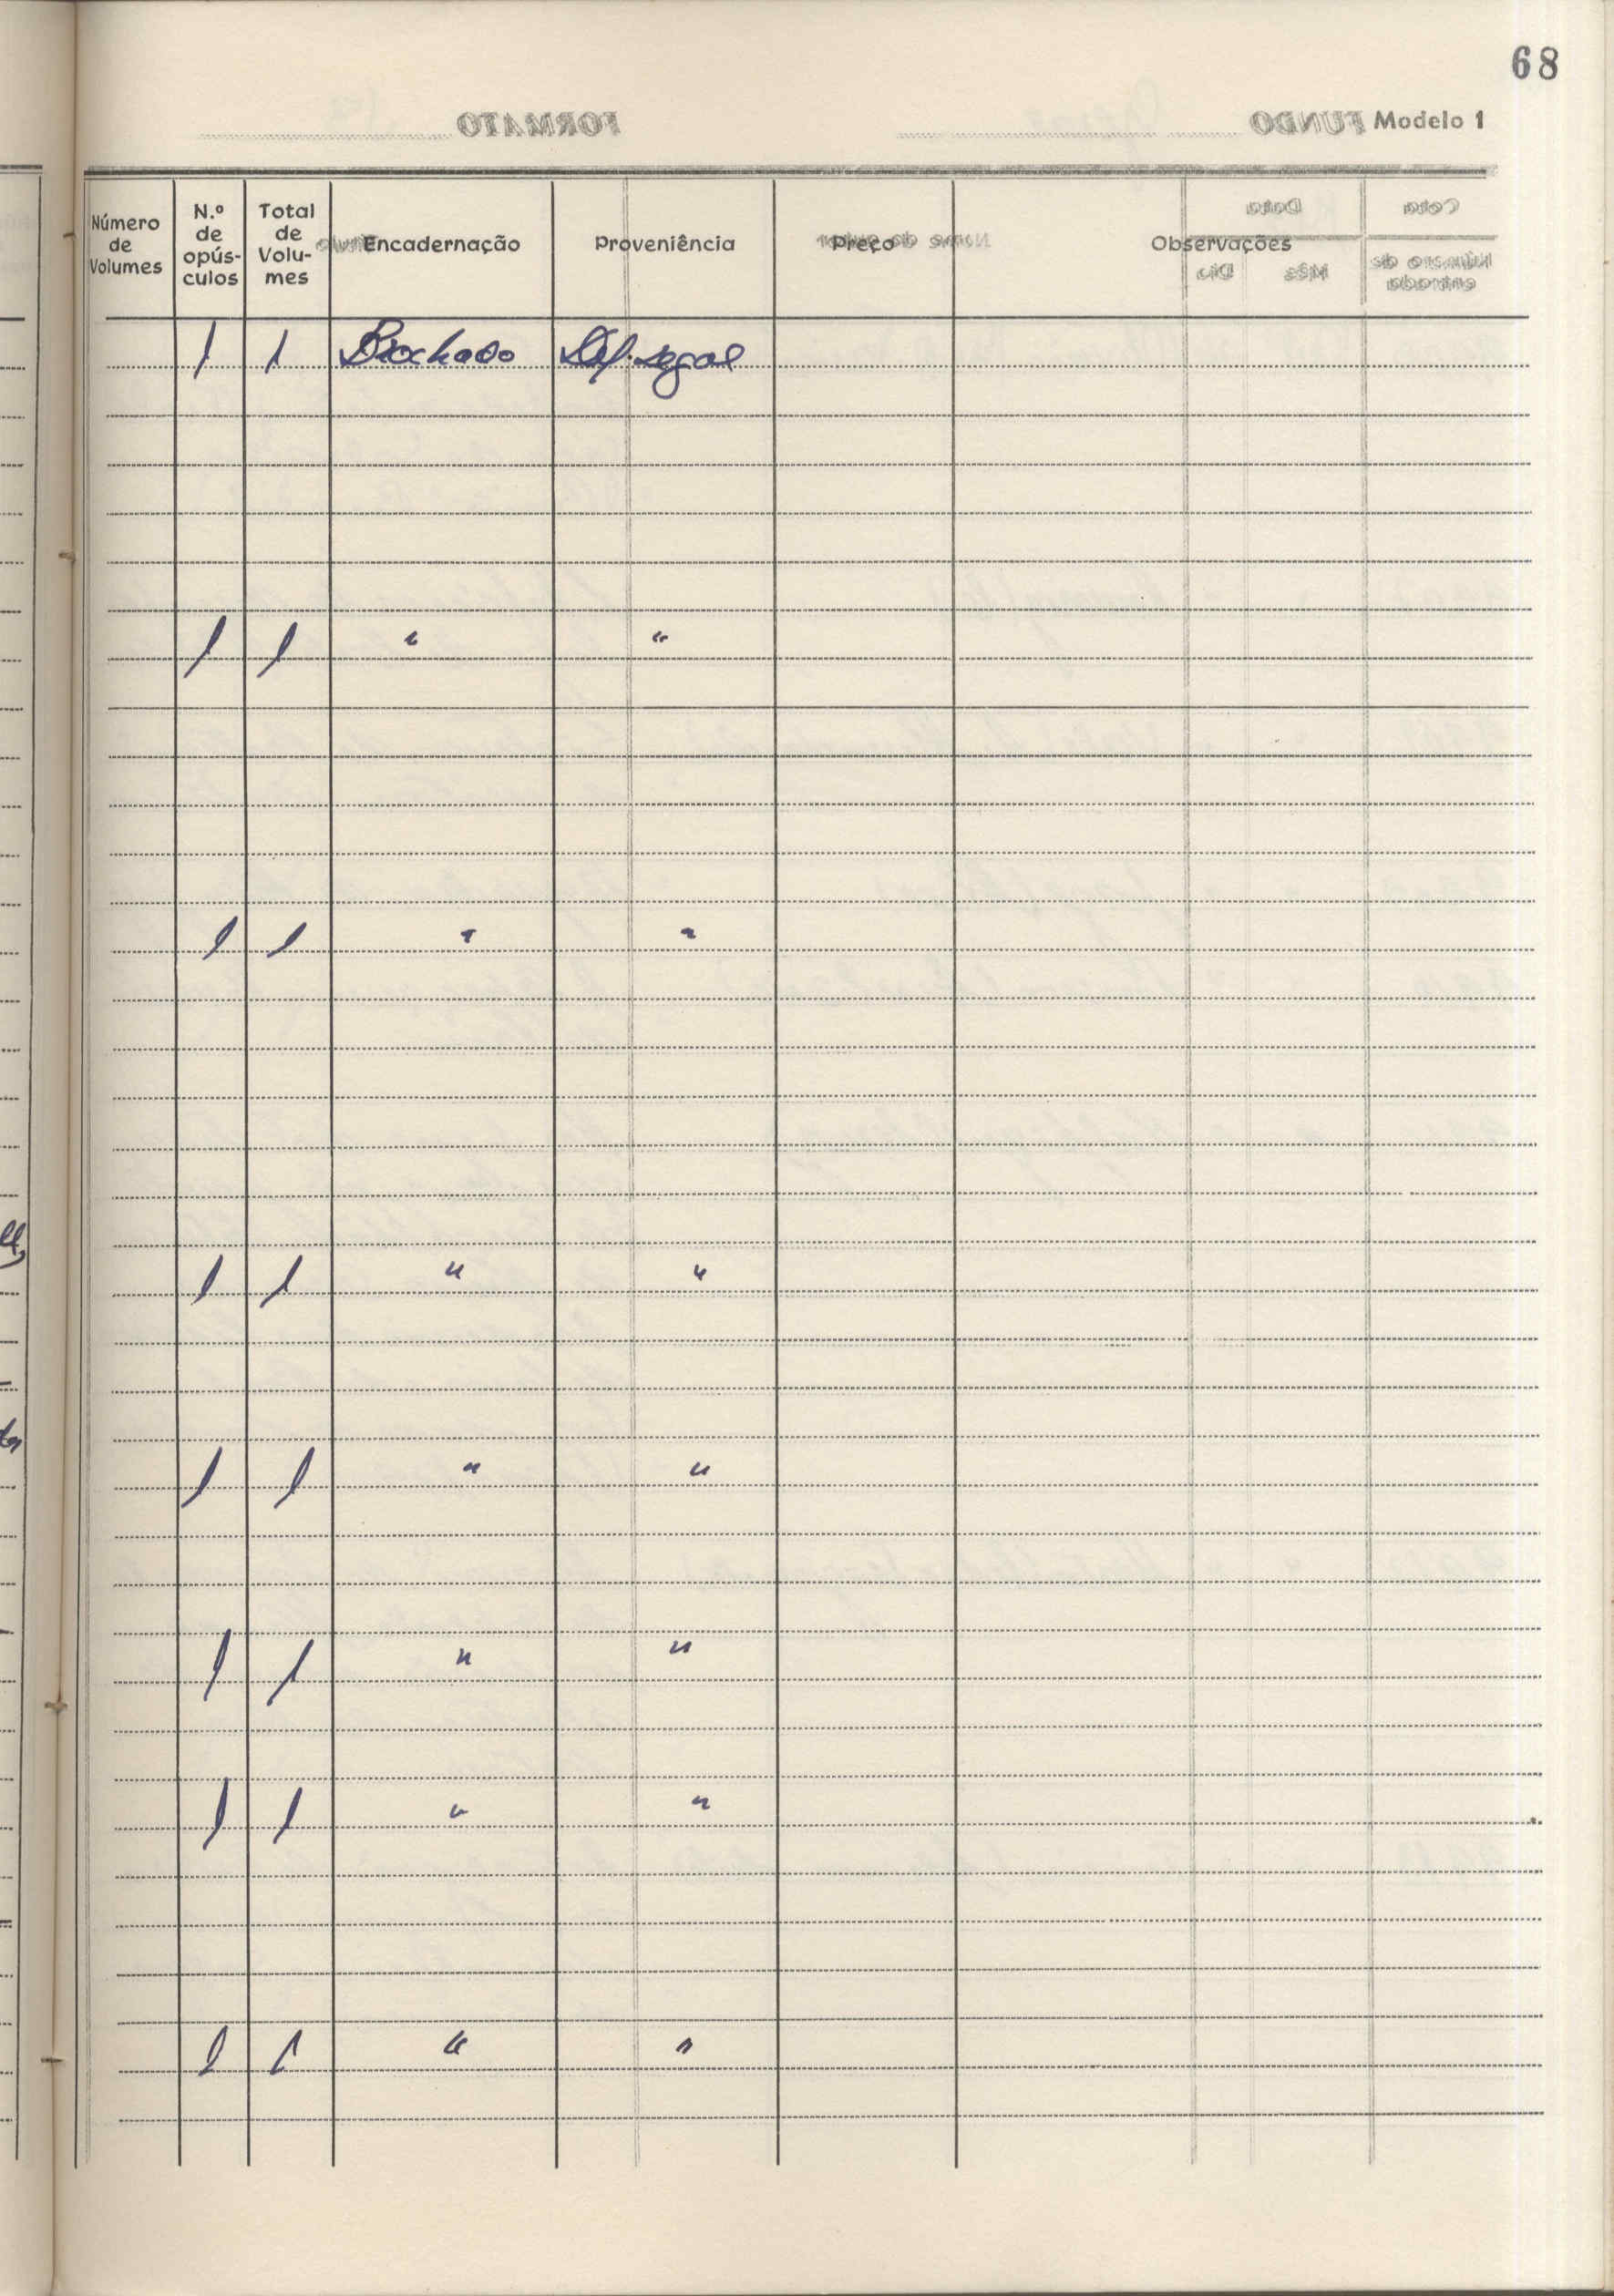 68
Modelo 1
Número de Volumes
N.º de opús-culos
Total de Volu-mes
Encadernação
Proveniência
Preço
Observações
1 1 Brochado Dep. Legal
1 1 " "
1 1 " "
1 1 " "
1 1 " "
1 1 " "
1 1 " "
1 1 " "